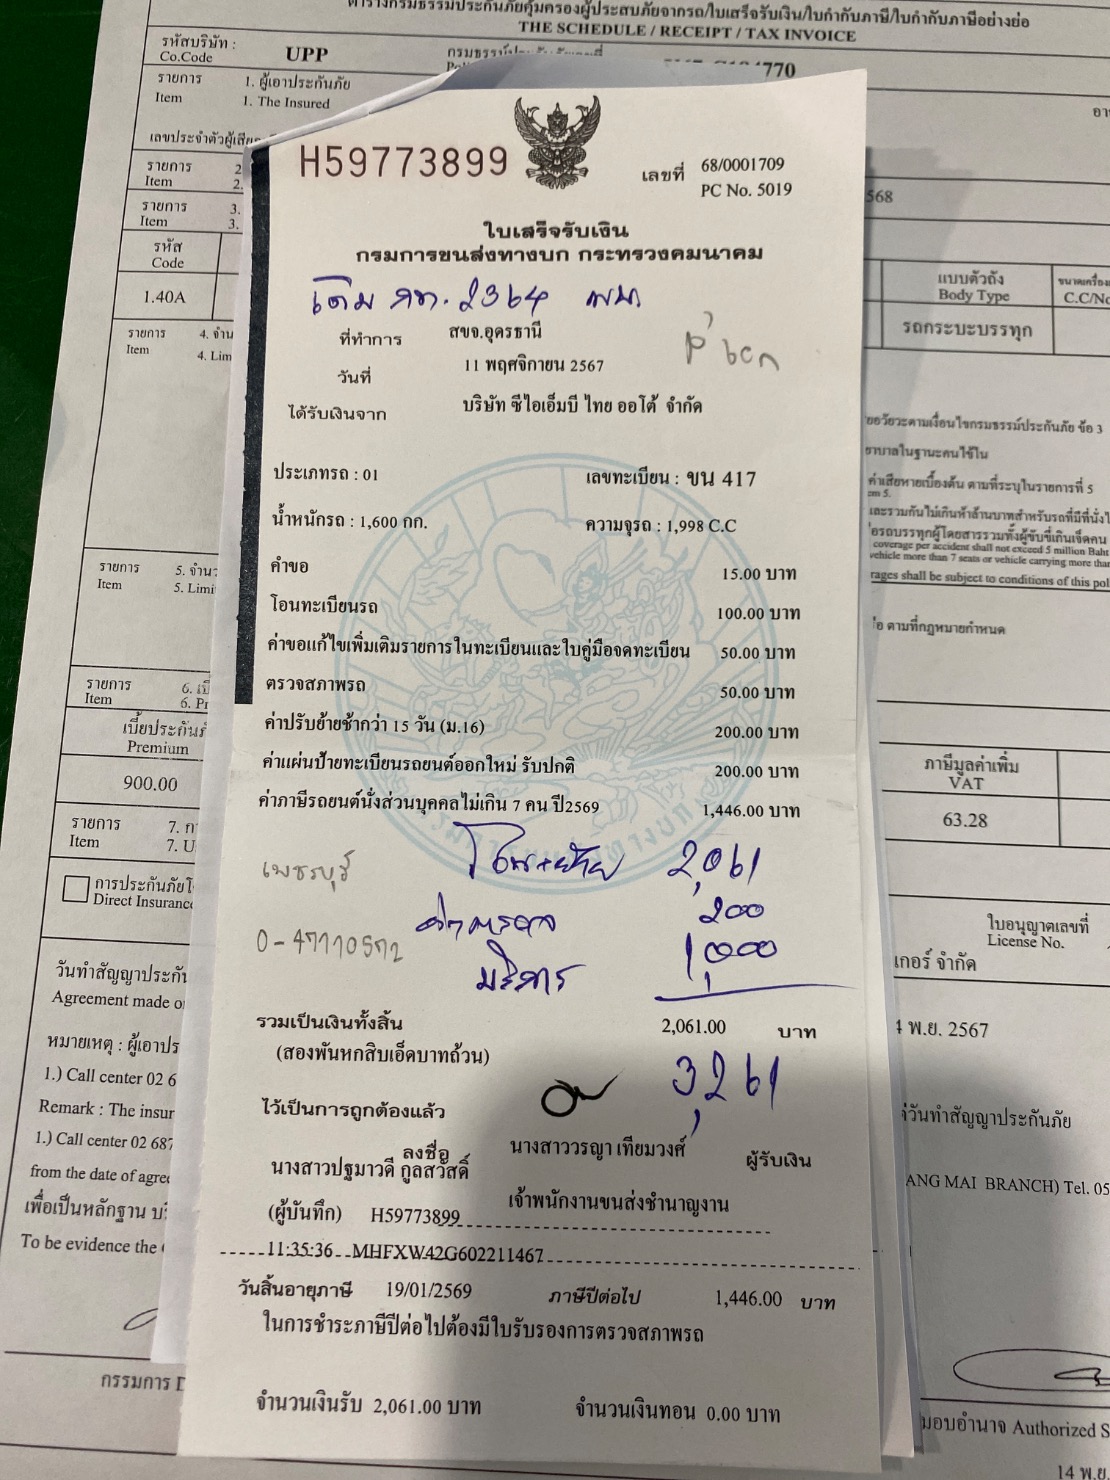 ตารางกรมธรรม์ประกันภัยคุ้มครองผู้ประสบภัยจากรถ/ใบเสร็จรับเงิน/ใบกำกับภาษี/ใบกำกับภาษีอย่างย่อ
THE SCHEDULE / RECEIPT / TAX INVOICE
รหัสบริษัท :
Co.Code
UPP
รายการ
Item
1. ผู้เอาประกันภัย
1. The Insured
รายการ 2
Item 2.
รายการ 3.
Item 3.
568
รหัส
Code
แบบตัวถัง
Body Type
C.C/No
1.40A
รถกระบะบรรทุก
รายการ 4. จำน
Item 4. Lim
รายการ 5. จำนว
Item 5. Limi
รายการ 6.
Item 6.
Premium
900.00
ภาษีมูลค่าเพิ่ม
VAT
63.28
รายการ 7.
Item 7. U
Direct Insurance
ใบอนุญาตเลขที่
License No.
วันทำสัญญาประกัน
Agreement made o
หมายเหตุ : ผู้เอาปร
1.) Call center 02 6
Remark : The insur
1.) Call center 02 687
from the date of agree
เพื่อเป็นหลักฐาน
To be evidence the
กรรมการ
เกอร์ จำกัด
พ.ย. 2567
วันทำสัญญาประกันภัย
ANG MAI BRANCH) Tel. 05
มอบอำนาจ Authorized S
14 พ.ย.
ตามที่กฎหมายกำหนด
coverage per accident shall not exceed 5 million Baht
vehicle more than 7 seats or vehicle carrying more than
rages shall be subject to conditions of this pol
H59773899
เลขที่ 68/0001709
PC No. 5019
ใบเสร็จรับเงิน
กรมการขนส่งทางบก กระทรวงคมนาคม
เดิม 2364
ที่ทำการ สขจ.อุดรธานี
วันที่ 11 พฤศจิกายน 2567
ได้รับเงินจาก บริษัท ซีไอเอ็มบี ไทย ออโต้ จำกัด
ประเภทรถ : 01 เลขทะเบียน : ขน 417
น้ำหนักรถ : 1,600 กก. ความจุรถ : 1,998 C.C
คำขอ 15.00 บาท
โอนทะเบียนรถ 100.00 บาท
ค่าขอแก้ไขเพิ่มเติมรายการในทะเบียนและใบคู่มือจดทะเบียน 50.00 บาท
ตรวจสภาพรถ 50.00 บาท
ค่าปรับย้ายช้ากว่า 15 วัน (ม.16) 200.00 บาท
ค่าแผ่นป้ายทะเบียนรถยนต์ออกใหม่ รับปกติ 200.00 บาท
ค่าภาษีรถยนต์นั่งส่วนบุคคลไม่เกิน 7 คน ปี2569 1,446.00 บาท
โอน+ย้าย 2,061
เพชรบุรี
200
0-47110572
บริการ 1,000
รวมเป็นเงินทั้งสิ้น 2,061.00 บาท
(สองพันหกสิบเอ็ดบาทถ้วน)
3,261
ไว้เป็นการถูกต้องแล้ว
ลงชื่อ นางสาววรญา เทียมวงศ์ ผู้รับเงิน
นางสาวปฐมาวดี กูลสวัสดิ์
เจ้าพนักงานขนส่งชำนาญงาน
(ผู้บันทึก) H59773899
11:35:36 MHFXW42G602211467
วันสิ้นอายุภาษี 19/01/2569 ภาษีปีต่อไป 1,446.00 บาท
ในการชำระภาษีปีต่อไปต้องมีใบรับรองการตรวจสภาพรถ
จำนวนเงินรับ 2,061.00 บาท จำนวนเงินทอน 0.00 บาท